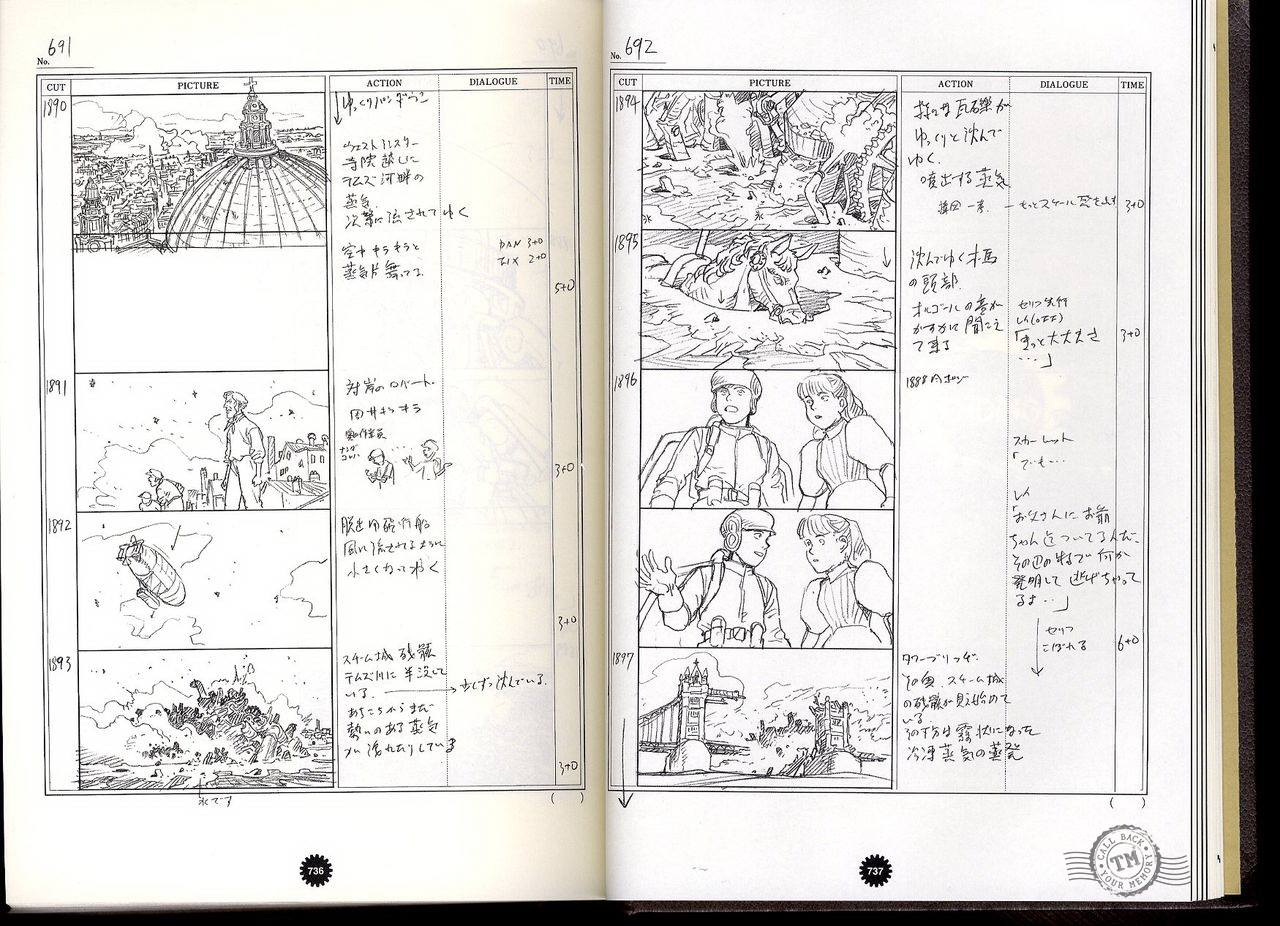 No. 691
CUT PICTURE ACTION DIALOGUE TIME
1890
ゆっくりパンダウン
ウェストミンスター
寺院越しに
テムズ河畔の
蒸気.
次第に流されてゆく
空中キラキラと
蒸気片舞ってる
PAN 3+0
FIX 2+0
5+0
1891
対岸のロバート.
3+0
1892
脱出用飛行船
風に流されてるように
小さくなってゆく
3+0
1893
スチーム城残骸
テムズ川に半没して
いる. → 少しずつ沈んでいる.
あちこちからまだ
勢いのある蒸気
3+0
氷です
( )
736
No. 692
CUT PICTURE ACTION DIALOGUE TIME
1894
瓦礫が
ゆっくりと沈んで
ゆく.
噴出する蒸気
3+0
氷
氷
1895
沈んでゆく木馬
の頭部.
オルゴールの音が
かすかに聞こえ
て来る
セリフ先行
レイ(OFF)
「きっと大丈夫さ
…」
3+0
1896
1888 同ポジ
スカーレット
「でも…
レイ
「お父さんにお爺
ちゃんもついてるんだ.
その辺の物で何か
発明して逃げちゃって
るよ…」
セリフ
こぼれる
6+0
1897
タワーブリッヂ.
その奥、スチーム城
の残骸が見え始めて
いる
下方は霧状になった
冷凍蒸気の蒸発
( )
737
CALL BACK
TM
YOUR MEMORY